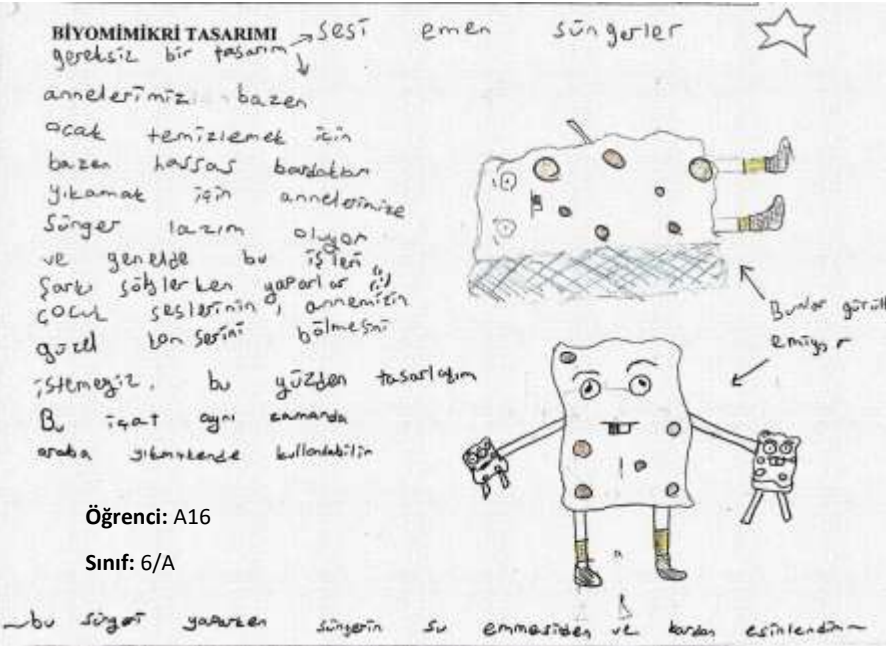 BİYOMİMİKRİ TASARIMI → sesi emen süngerler
gereksiz bir tasarım
annelerimiz bazen
ocak temizlemek için
bazen hassas bardakları
yıkamak için annelerimize
sünger lazım oluyor
ve genelde bu işleri
şarkı söylerken yaparlar
çocuk seslerinin, annemizin
güzel konserini bölmesini
istemeyiz. bu yüzden tasarladım
Bu icat aynı zamanda
araba yıkmakende kullanılabilir
Bunlar gürült
emiyor
Öğrenci: A16
Sınıf: 6/A
~bu süngeri yaparken süngerin su emmesinden ve kardan esinlendim~